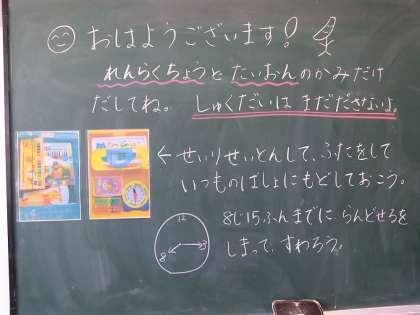 おはようございます!
れんらくちょうとたいおんのかみだけ
だしてね。しゅくだいは まだださないよ。
← せいりせいとんして、ふたをして
いつものばしょにもどしておこう。
12
3
8
8じ15ふんまでに らんどせるを
しまって、すわろう。